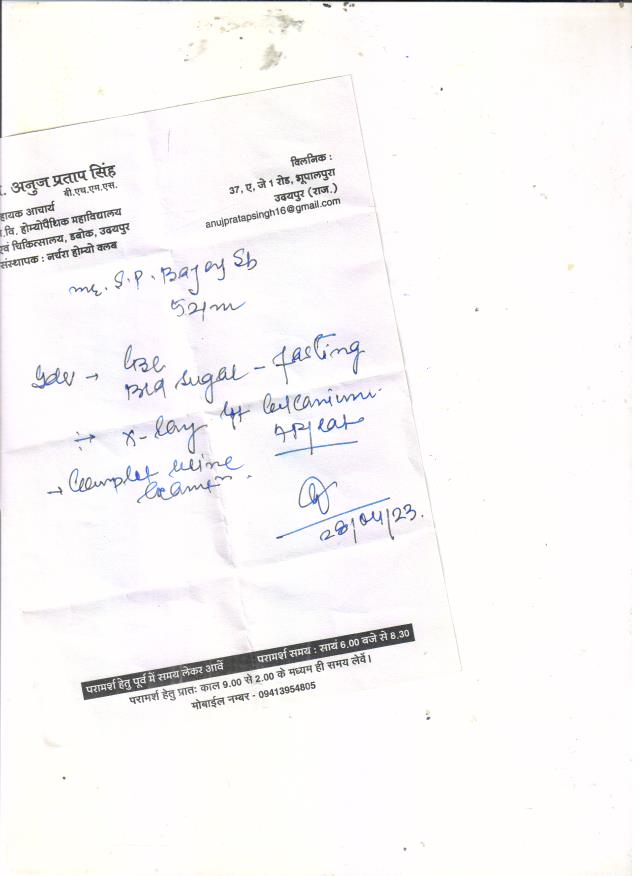 . अनुज प्रताप सिंह
बी.एच.एम.एस.
हायक आचार्य
.वि. होम्योपैथिक महाविद्यालय
एवं चिकित्सालय, डबोक, उदयपुर
संस्थापक : नर्चरा होम्यो क्लब
क्लिनिक :
37, ए, जे 1 रोड, भूपालपुरा
उदयपुर (राज.)
anujpratapsingh16@gmail.com
Mr. S.P. Bajaj Sb
→ CBC
Bld sugar - fasting
x-ray
AP/Lat
→ Complet urine
28/04/23.
परामर्श हेतु पूर्व में समय लेकर आवें परामर्श समय : सायं 6.00 बजे से 8.30
परामर्श हेतु प्रातः काल 9.00 से 2.00 के मध्यम ही समय लेवें।
मोबाईल नम्बर - 09413954805